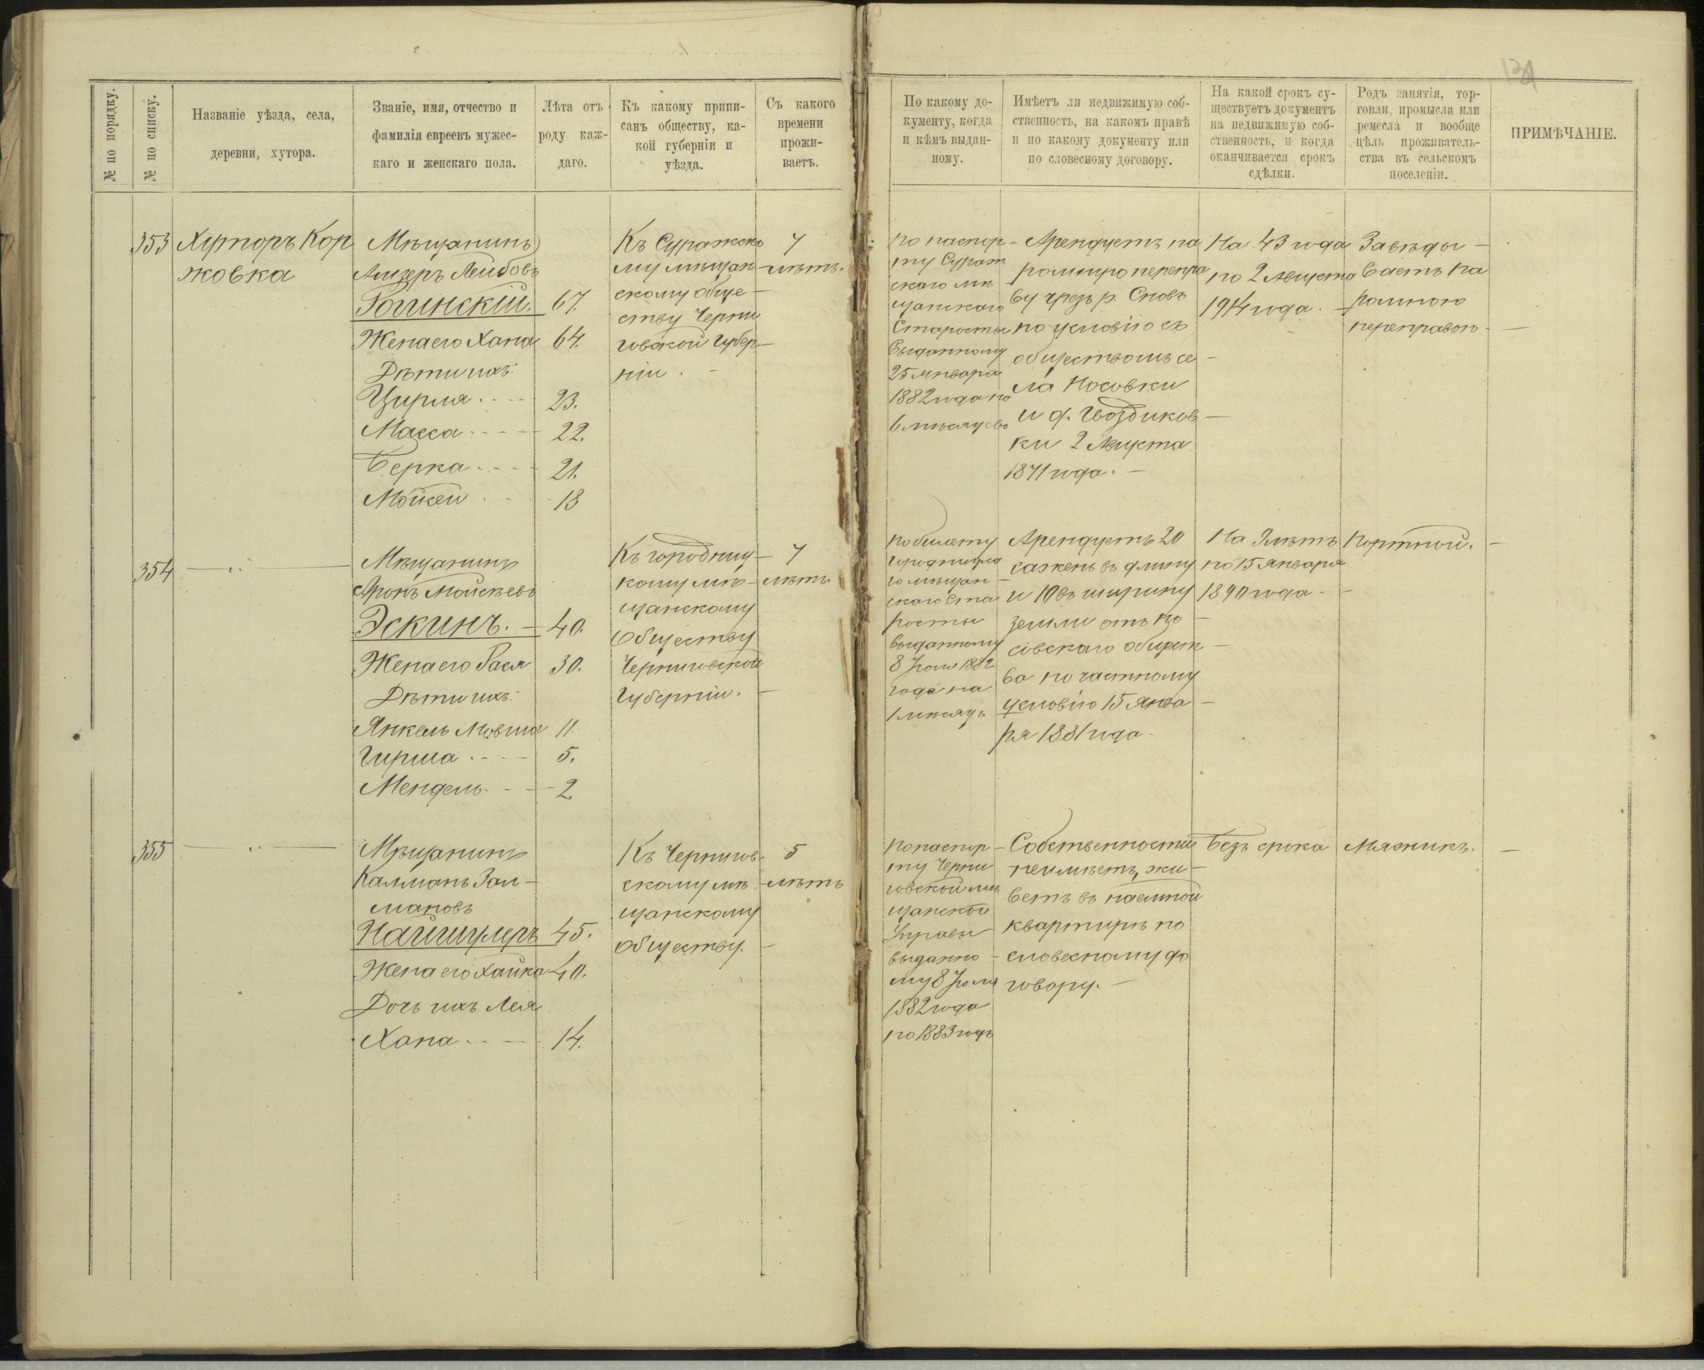 131
№ по порядку.
№ по списку.
Названіе уѣзда, села,
деревни, хутора.
Званіе, имя, отчество и
фамилія евреевъ мужес-
каго и женскаго пола.
Лѣта отъ
роду каж-
даго.
Къ какому припи-
санъ обществу, ка-
кой губерніи и
уѣзда.
Съ какого
времени
прожи-
ваетъ.
По какому до-
кументу, когда
и кѣмъ выдан-
ному.
Имѣетъ ли недвижимую соб-
ственность, на какомъ правѣ
и по какому документу или
по словесному договору.
На какой срокъ су-
ществуетъ документъ
на недвижимую соб-
ственность, и когда
оканчивается срокъ
сдѣлки.
Родъ занятія, тор-
говли, промысла или
ремесла и вообще
цѣль проживатель-
ства въ сельскомъ
поселеніи.
ПРИМѢЧАНІЕ.
353
Хуторъ Кор
жовка
Мѣщанинъ
Лейбовъ
Рогинскій. 67.
Жена его Хана 64.
Дѣти ихъ:
Цирля 23.
Масса 22.
Берка 21.
Мойсей 18
Къ Суражско
му мѣщан-
скому обще-
ству Черни
говской Губер-
ніи.
7
лѣтъ.
по паспор-
ту Сураж
скаго мѣ
щанскаго
Старосты
выданному
25 Января
1882 года на
6 мѣсяцевъ
Арендуетъ па
ромную перепра
ву чрезъ р. Сновъ
по условію съ
обществомъ се-
ла Носовки
и д. Гвоздиков-
ки 2 Августа
1871 года.
На 43 года
по 2 Августа
1914 года.
Завѣды-
ваетъ па
ромною
переправою
354
Мѣщанинъ
Аронъ Мойсѣевъ
Эскинъ. 40.
Жена его Рася 30.
Дѣти ихъ:
Янкель Мовша 11.
Гирша 5.
Мендель 2
Къ городниц-
кому мѣ-
щанскому
Обществу
Черниговской
Губерніи.
7
лѣтъ
по билету
Городницка
го мѣщан-
скаго Ста
росты
выданному
8 Іюля 1882
года на
1 мѣсяцъ
Арендуетъ 20
сажень въ длину
и 10 въ ширину
земли отъ
общест-
ва по частному
условію 15 Янва
ря 1881 года
На 9 лѣтъ
по 15 Января
1890 года
Портной.
355
Мѣщанинъ
Калманъ Зал-
мановъ
Найшулеръ 45.
Жена его Хайка 40.
Дочь ихъ Лея
Хана 14.
Къ Чернигов-
скому мѣ
щанскому
Обществу.
5
лѣтъ
по паспор-
ту Черни
говской мѣ
щанской
Управы
выданно-
му 8 Іюля
1882 года
по 1883 годъ
Собственности
неимѣетъ, жи-
ветъ въ наемной
квартирѣ по
словесному до
говору.
Безъ срока
Мяжникъ.